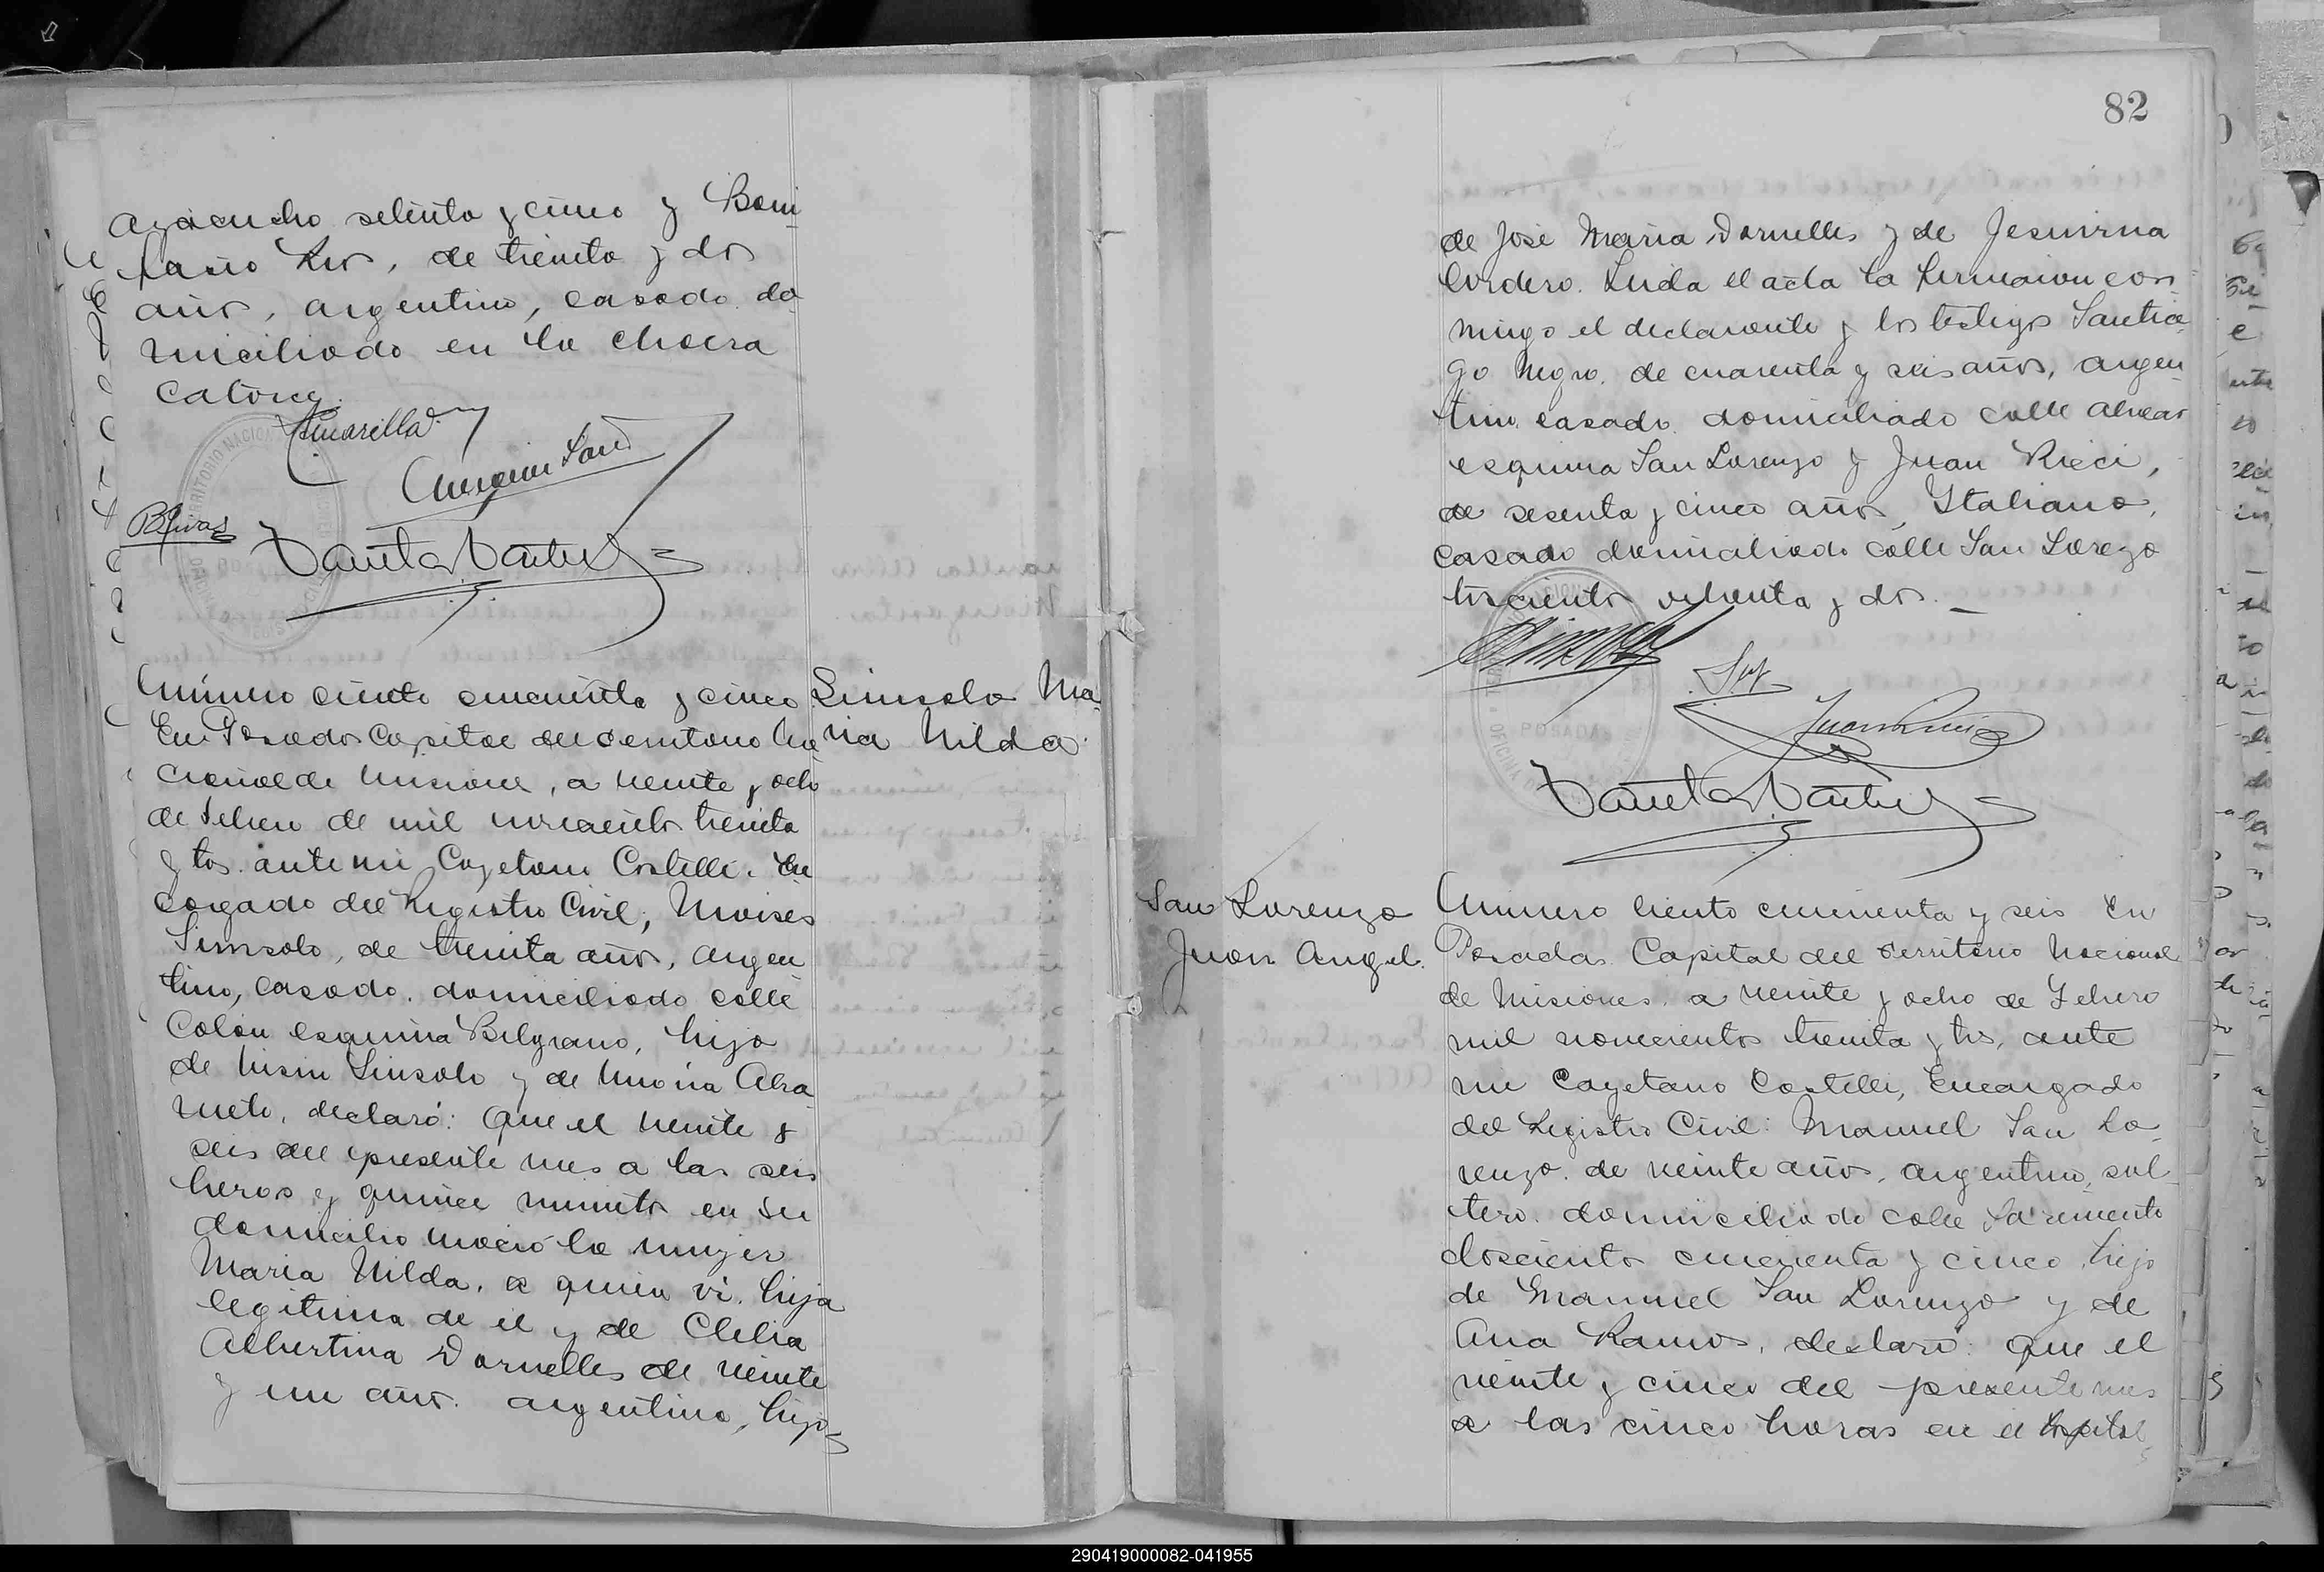 Ayacucho setenta y cinco y Boni
facio Rivas, de treinta y dos
años, argentino, casado do
miciliado en la chacra
catorce.
BRivas
Número ciento cincuenta y cinco
En Posadas Capital del Territorio Na
cional de Misiones, a veinte y ocho
de Febrero de mil novecientos treinta
y tres. ante mi Cayetano Castelli. En
cargado del Registro Civil; Moises
Simsolo, de treinta años, argen
tino, casado. domiciliado calle
Colón esquina Belgrano, hijo
de Nisin Simsolo y de
declaró: Que el veinte y
seis del presente mes a las seis
horas y quince minutos en su
domicilio nació la mujer
Maria Nilda, a quien vi. hija
legitima de él y de Clelia
Albertina Dornelles de veinte
y un años. argentina, hija
Simsolo Ma
ria Nilda
82
de José Maria Dornelles y de
Cordero. Leida el acta la firmaron con
migo el declarante y los testigos Santia
go Negro. de cuarenta y seis años, argen
tino casado domiciliado calle Alvear
esquina San Lorenzo y Juan Ricci,
de sesenta y cinco años, Italiano,
casado domiciliado calle San Lorenzo
trescientos ochenta y dos. —
POSADAS
San Lorenzo
Juan Angel.
Número Ciento cincuenta y seis En
Posadas Capital del Territorio Nacional
de Misiones a veinte y ocho de Febrero
mil novecientos treinta y tres, ante
mi Cayetano Castelli, Encargado
del Registro Civil: Manuel San Lo
renzo. de veinte años, argentino, sol
tero. domiciliado calle Sarmiento
doscientos cincuenta y cinco, hijo
de Emanuel San Lorenzo y de
Ana Ramos, declaró: Que el
veinte y cinco del presente mes
a las cinco horas en el Hospital
290419000082-041955